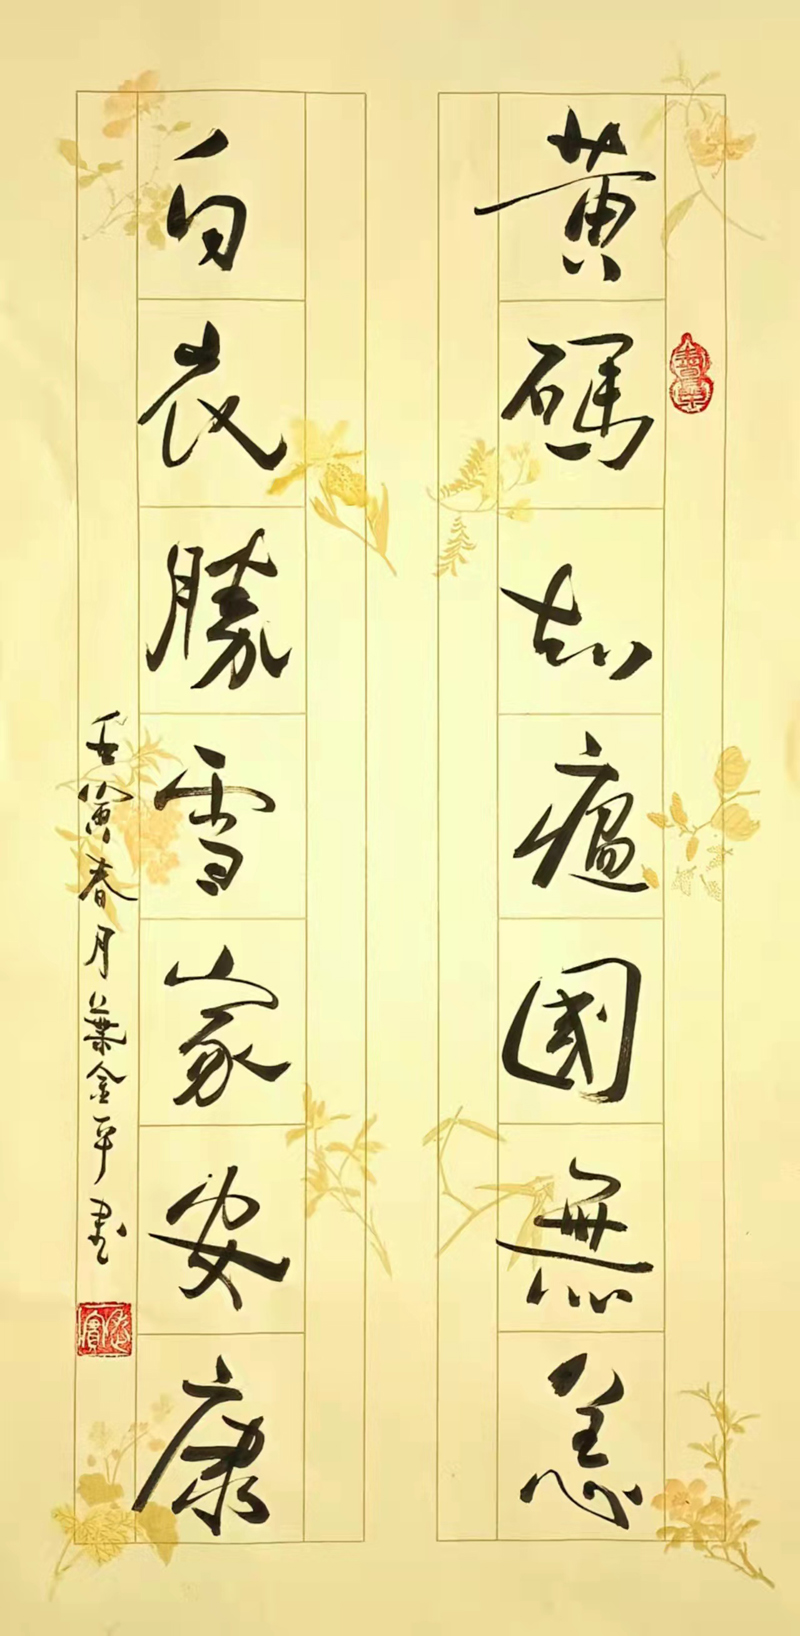 黄碼知瘟國無恙
白衣勝雪家安康
壬寅春月葉金平書